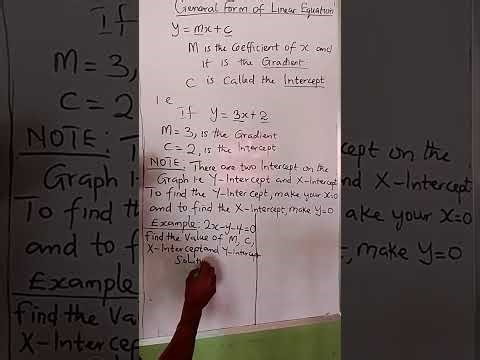 General Form of Linear Equation
y = mx + c
M is the Coefficient of x and
it is the Gradient
C is Called the Intercept
i.e
If y = 3x + 2
M = 3, is the Gradient
C = 2, is the Intercept
NOTE: There are two Intercept on the
Graph i.e Y-Intercept and X-Intercept
To find the Y-Intercept, make your x=0
and to find the X-Intercept, make y=0
Example: 2x-y-4=0
find the Value of M, C,
X-Intercept and Y-intercept
Solu